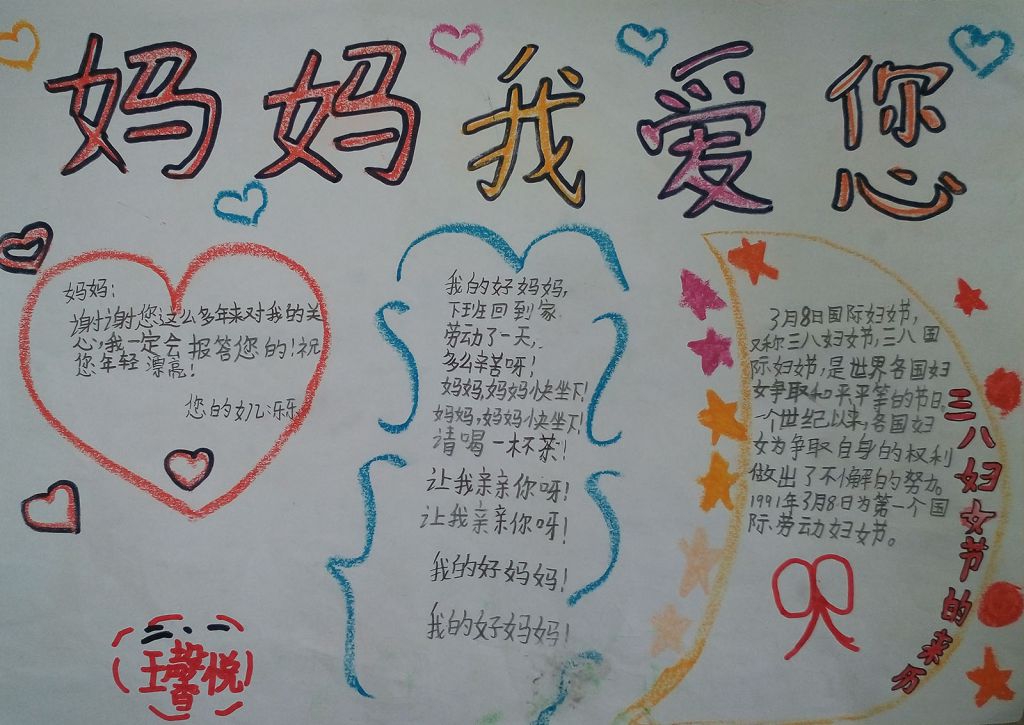 妈妈我爱您
妈妈:
谢谢您这么多年来对我的关
心,我一定会报答您的!祝
您年轻漂亮!
您的女儿:乐乐
我的好妈妈,
下班回到家,
劳动了一天,
多么辛苦呀!
妈妈,妈妈快坐下!
妈妈,妈妈快坐下!
请喝一杯茶!
让我亲亲你呀!
让我亲亲你呀!
我的好妈妈!
我的好妈妈!
3月8日国际妇女节,
又称三八妇女节,三八国
际妇女节,是世界各国妇
女争取和平平等的节日,
一个世纪以来,各国妇
女为争取自身的权利
做出了不懈的努力。
1991年3月8日为第一个国
际劳动妇女节。
三八妇女节的来历
二.一
王馨悦